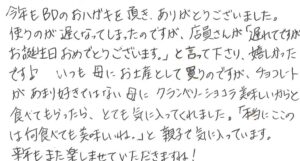 今年もBDのおハガキを頂き、ありがとうございました。
使りのが遅くなってしまったのですが、店員さんが「遅れですが
お誕生日おめでとうございます。」と言って下さり、嬉しかった
です♪ いつも母にお土産として買うのですが、チョコレート
があまり好きではない母にクランベリーショコラ美味しいからと
食べてもらったら、とても気に入ってくれました。「本当にここの
は何食べても美味しいね。」と親子で気に入っています。
来年もまた楽しませていただきますね！